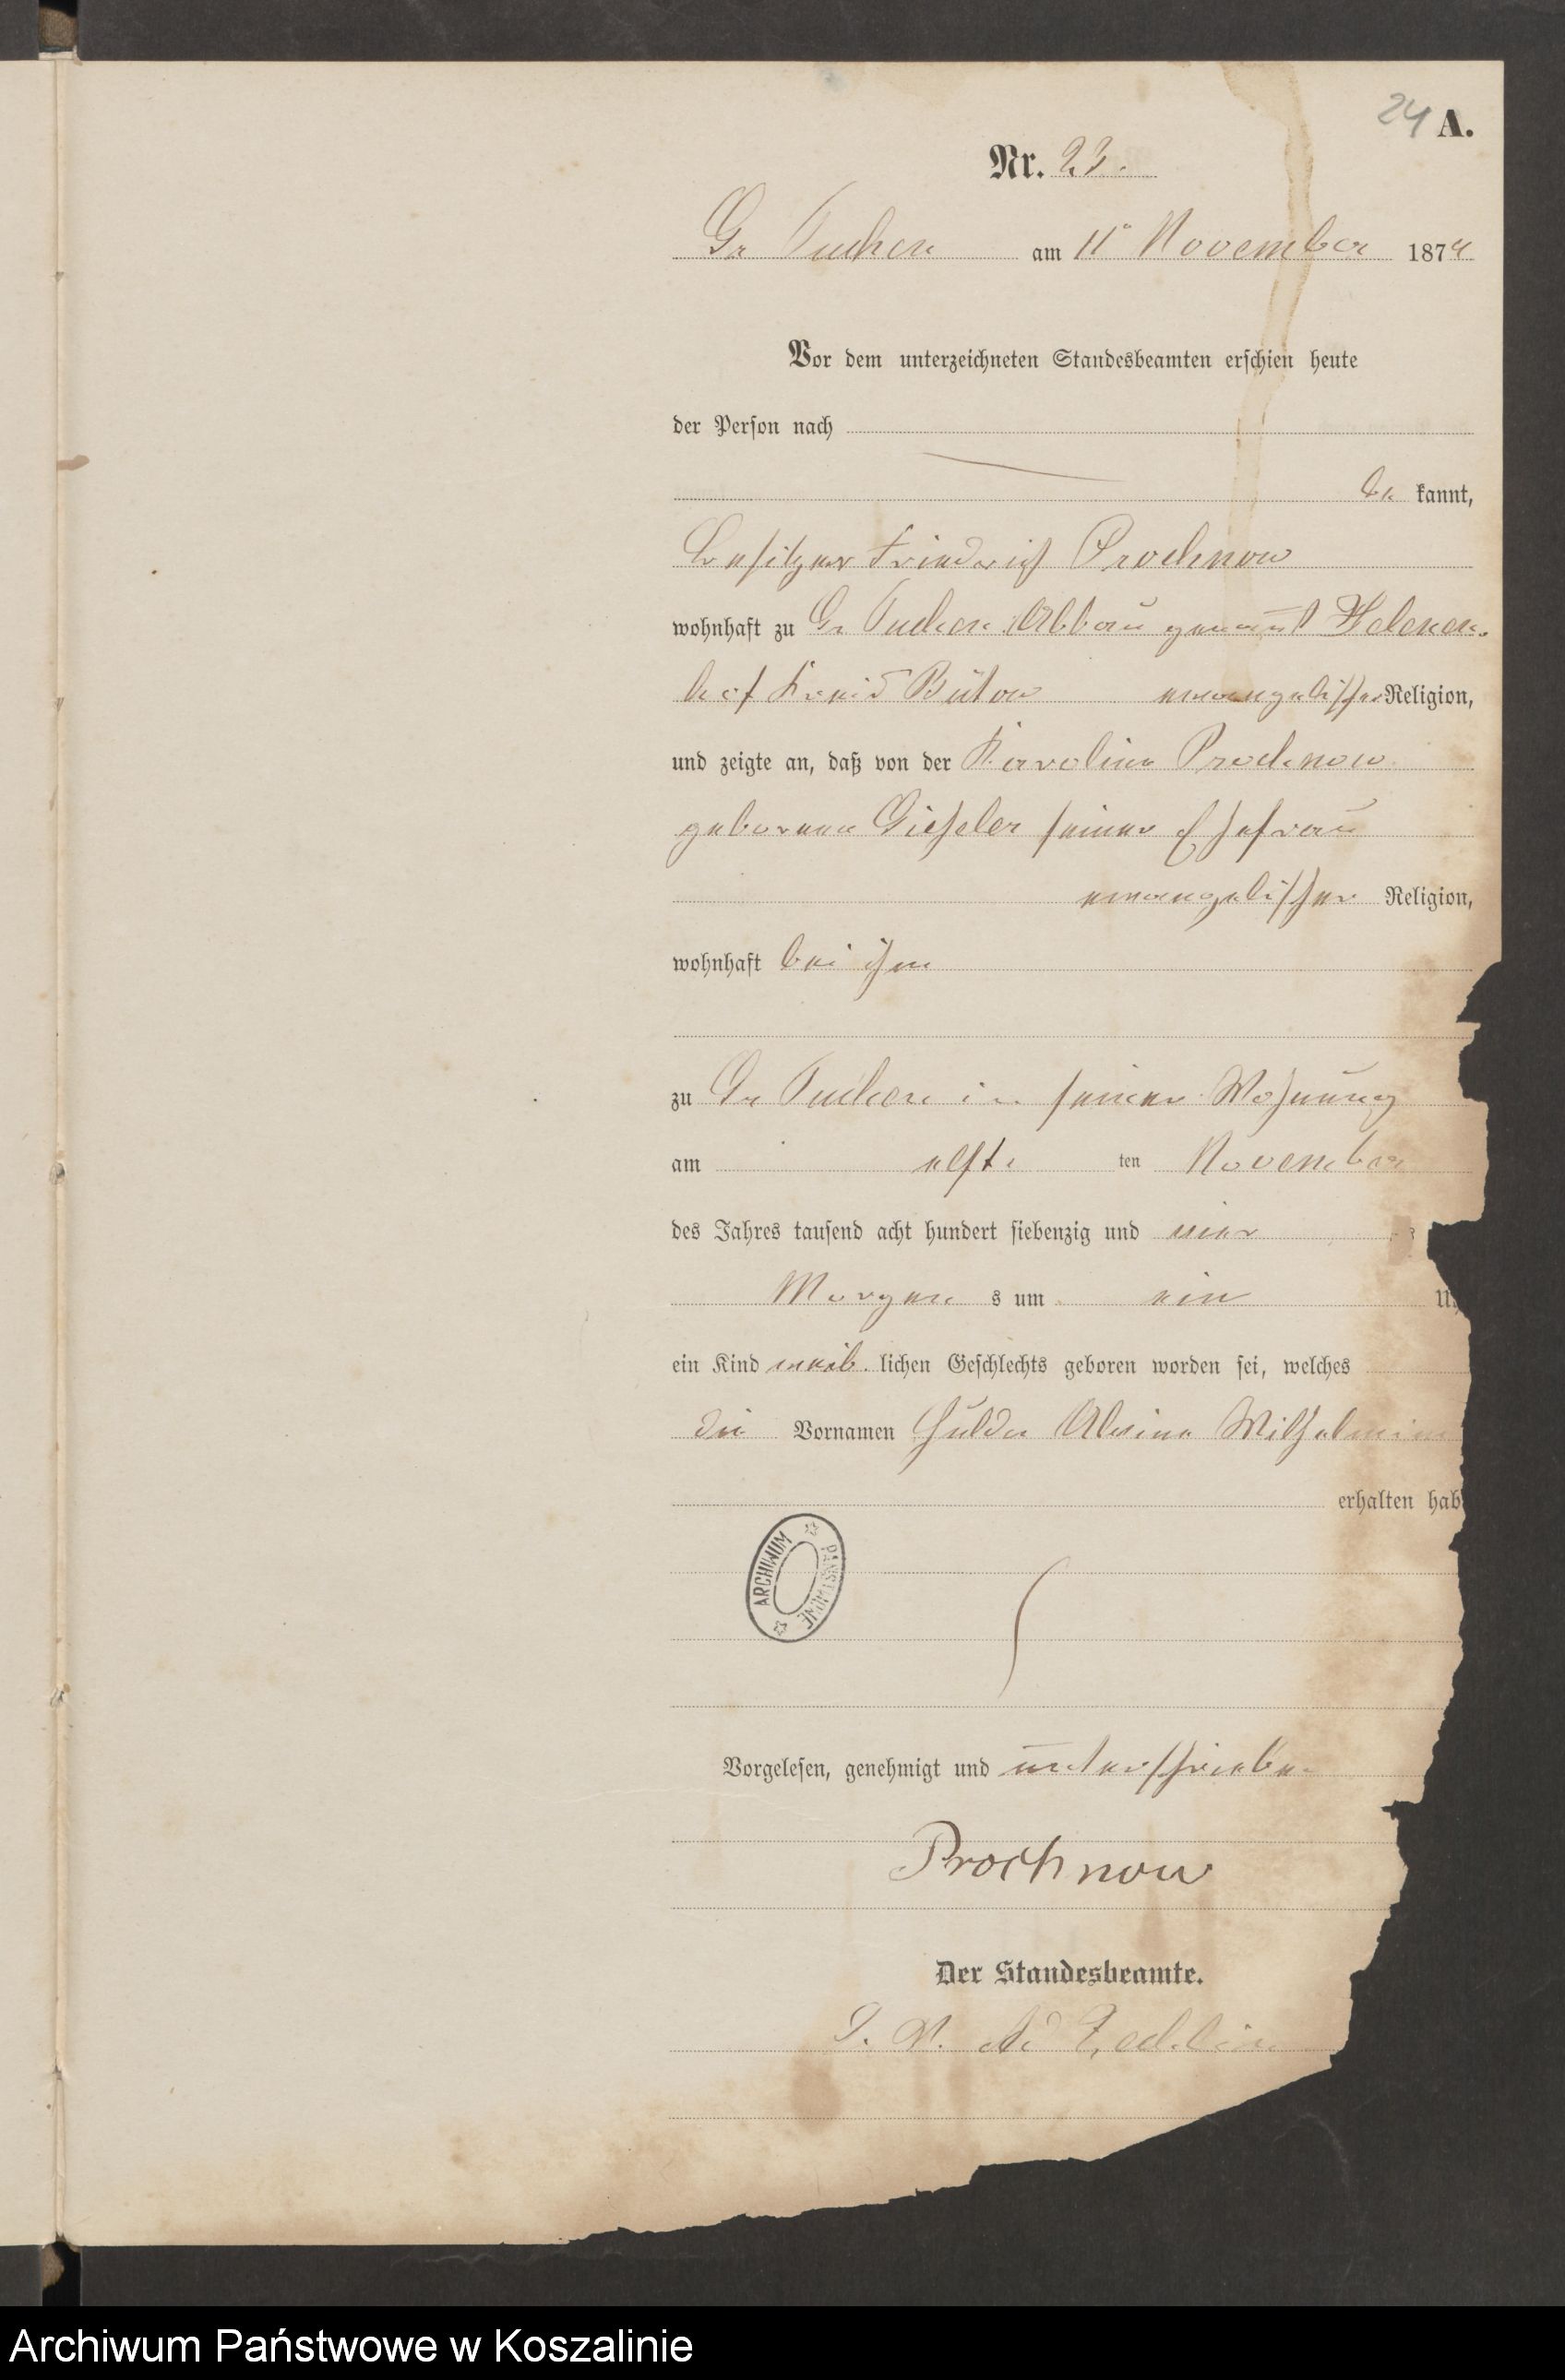 24 A.
Nr. 23.
Gr Tuchen am 11 November 1874
Vor dem unterzeichneten Standesbeamten erschien heute
der Person nach
be kannt,
Besitzer Friedrich Prochnow
wohnhaft zu Gr Tuchen Abbau genannt Helenen-
hof Kreis Bütow evangelischer Religion,
und zeigte an, daß von der Karoline Prochnow
geborenen Gießeler seiner Ehefrau
evangelischer Religion,
wohnhaft bei ihm
zu Gr Tuchen in seiner Wohnung
am elfte ten November
des Jahres tausend acht hundert siebenzig und vier
Morgen s um ein U
ein Kind weib lichen Geschlechts geboren worden sei, welches
die Vornamen Hulda Alwine Wilhelmine
erhalten hab
ARCHIWUM PAŃSTWOWE
Vorgelesen, genehmigt und unterschrieben
Prochnow
Der Standesbeamte.
I. V.
Archiwum Państwowe w Koszalinie